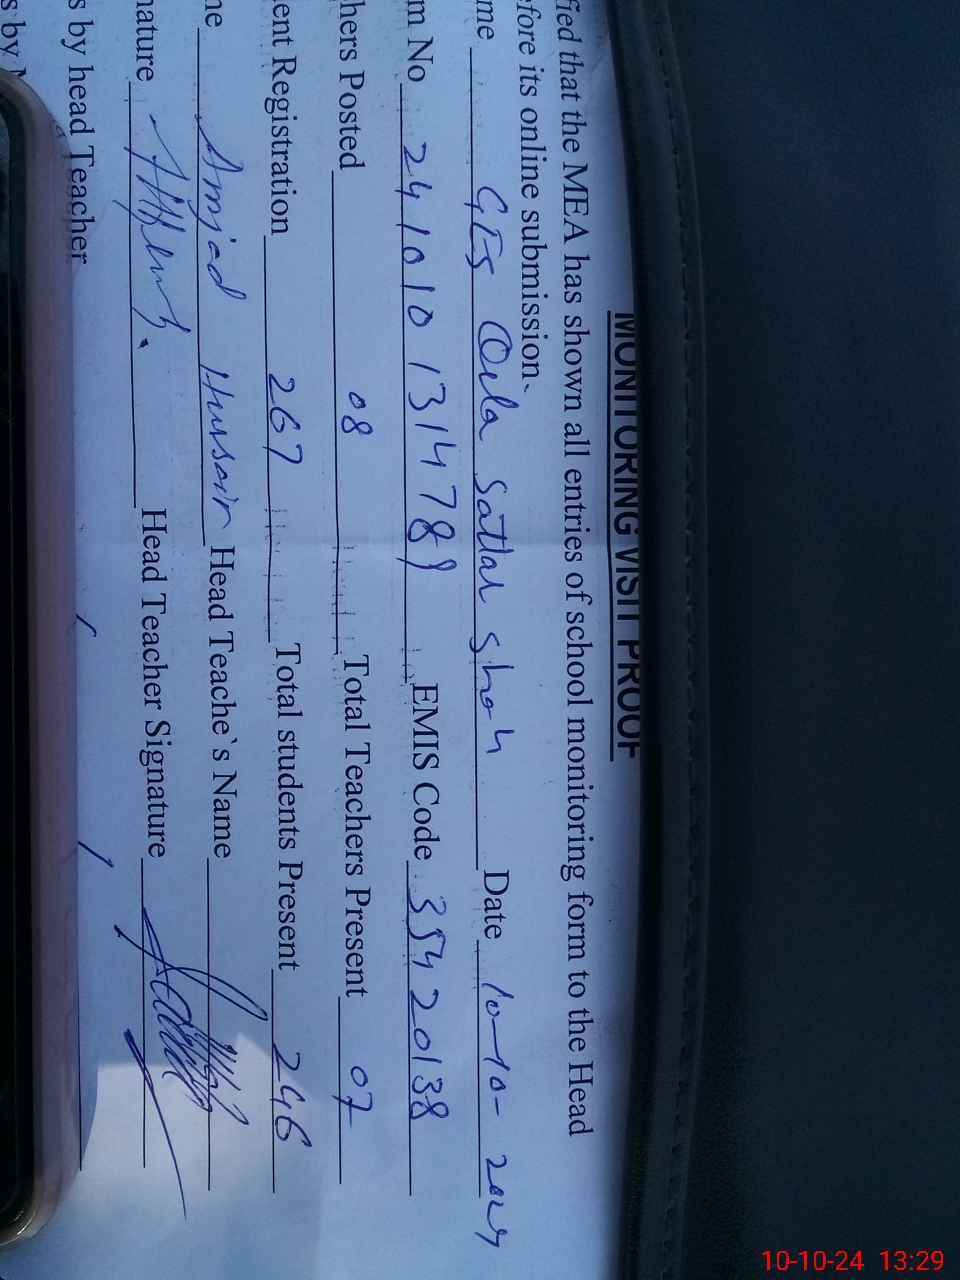 MONITORING VISIT PROOF
fied that the MEA has shown all entries of school monitoring form to the Head
efore its online submission.
me GES Qila Sattar Shah Date 10-10-2024
m No 24101013147 89 EMIS Code 35420138
hers Posted 08 Total Teachers Present 07
ent Registration 267 Total students Present 246
ne Amjad Hussain Head Teache`s Name
nature Head Teacher Signature
s by head Teacher
s by
10-10-24 13:29